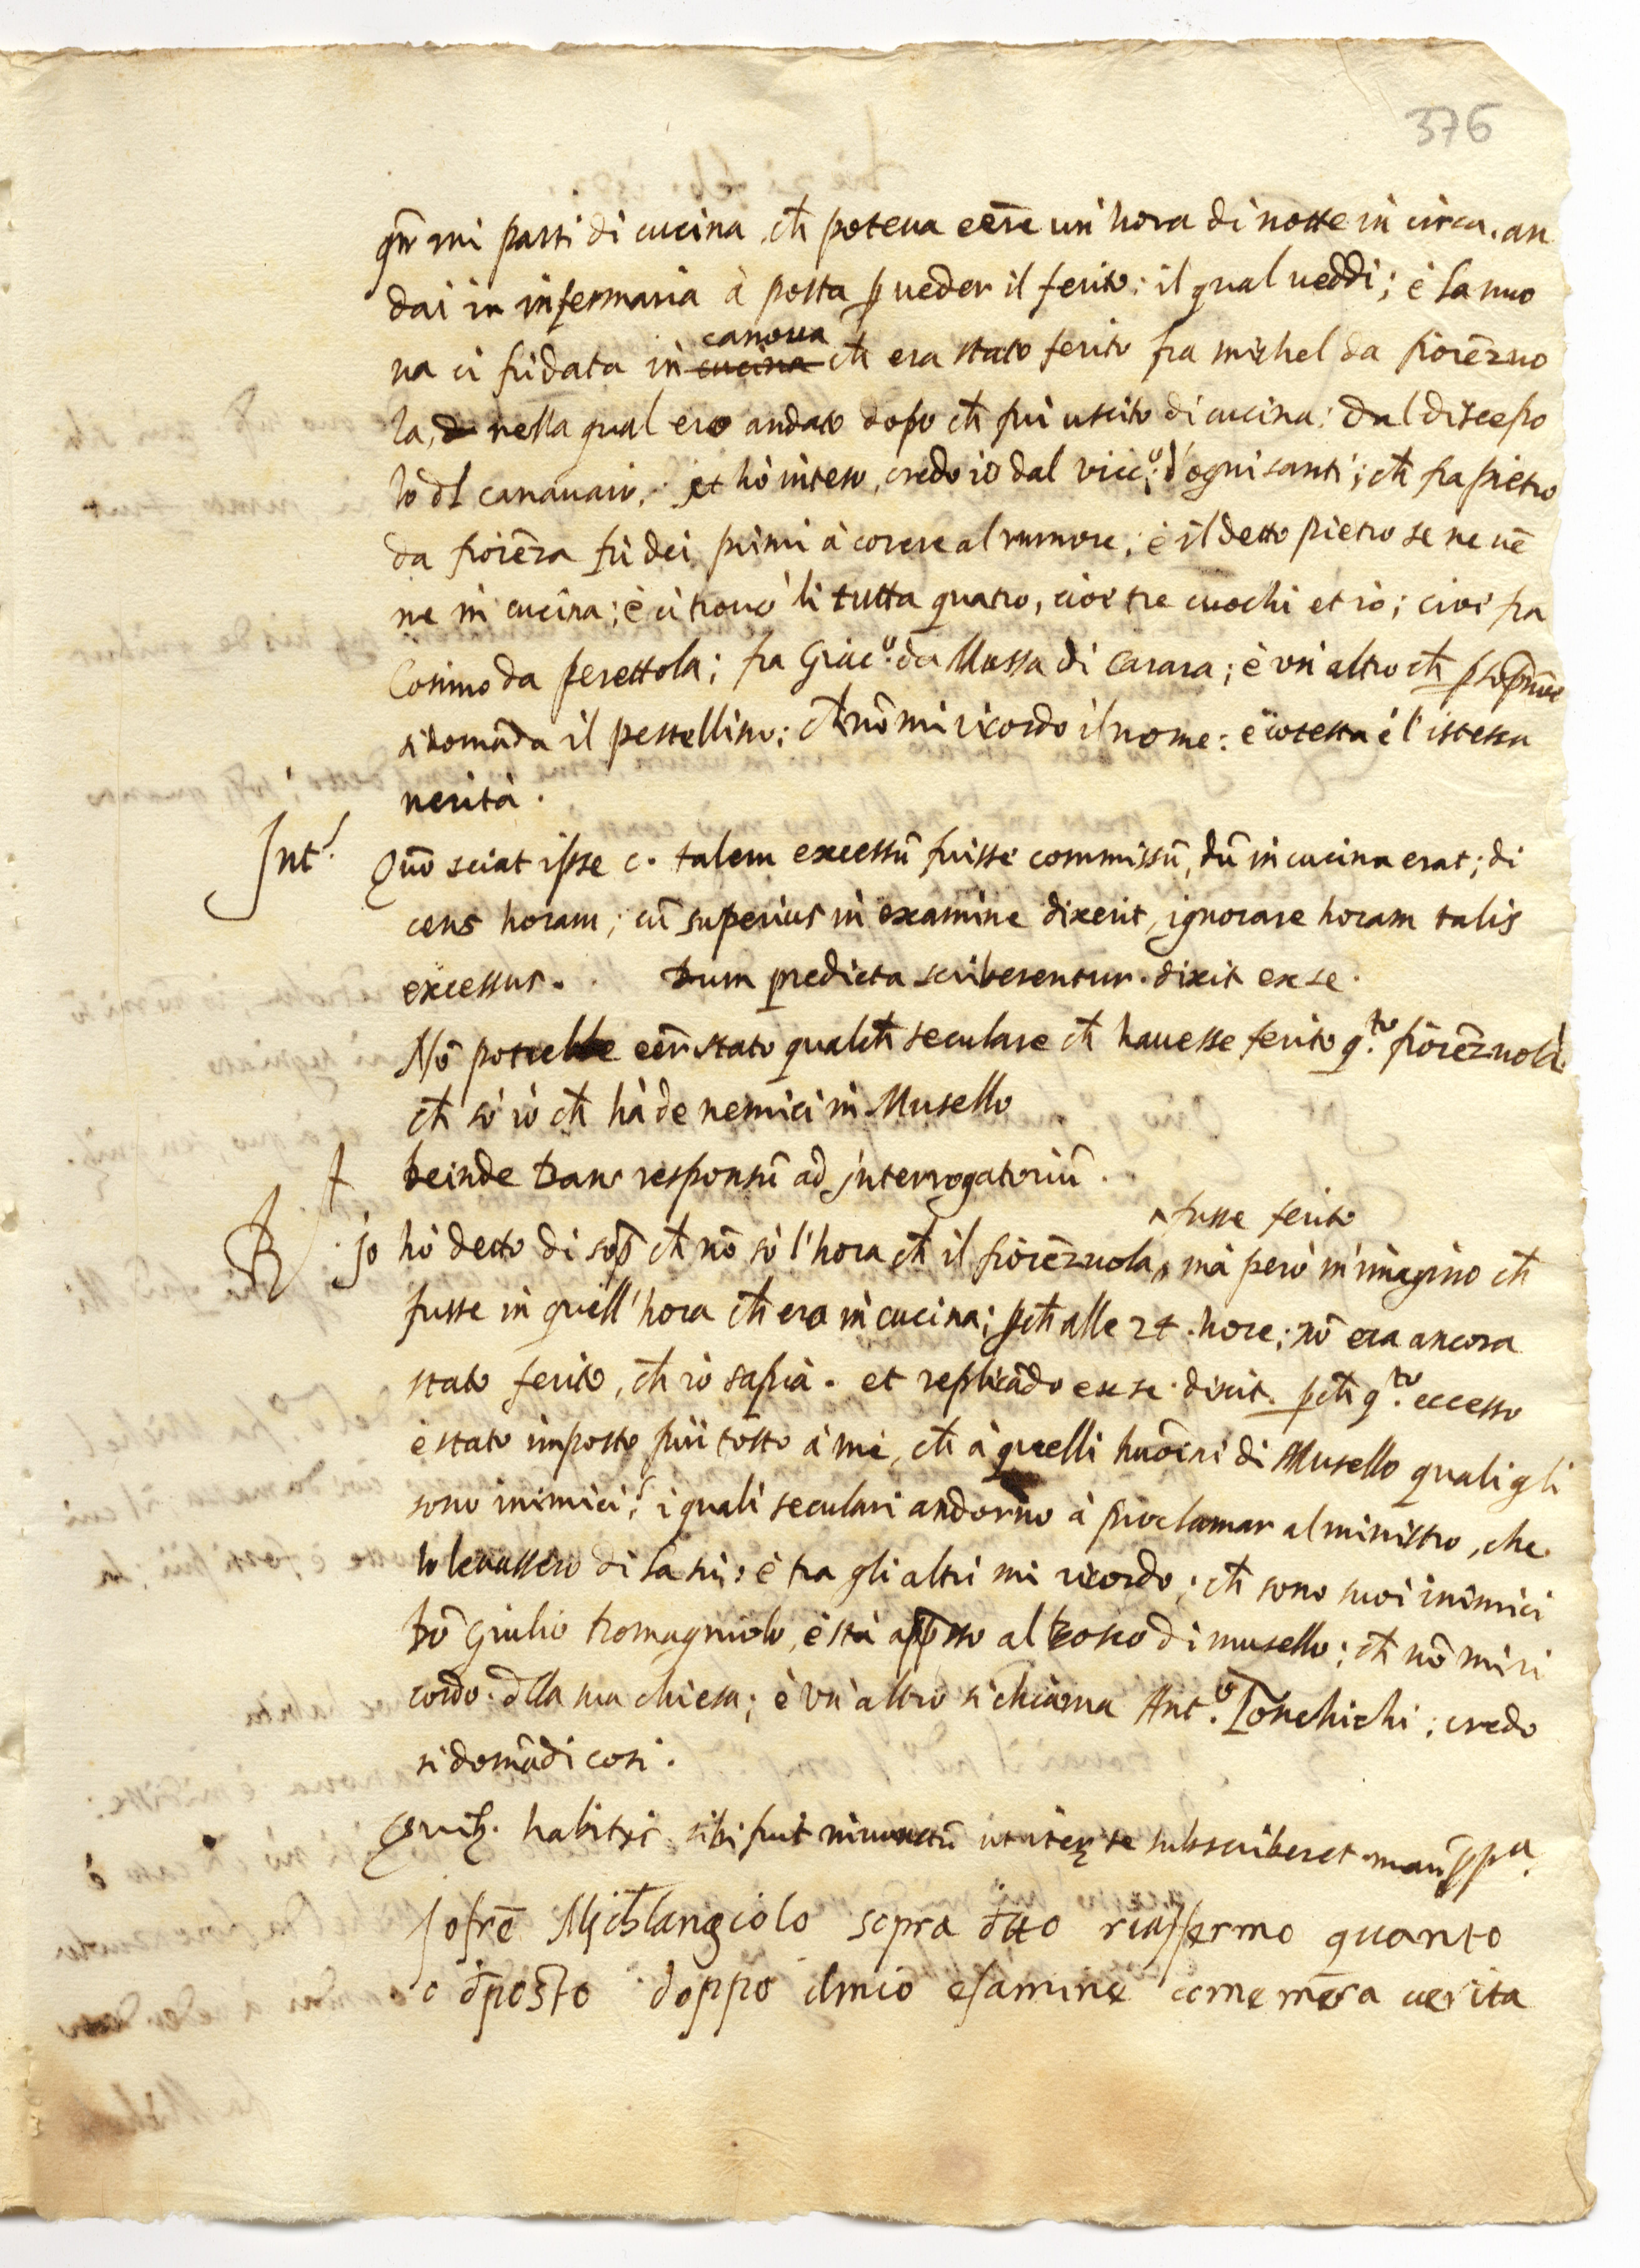 376
qñ mi parti di cucina ch̃ poteua eẽre un hora di notte in circa. an
dai in infermaria à posta ꝑ ueder il ferito; il qual ueddi; è la nuo
canoua
ua ci fù data in cucina ch̃ era stato ferito fra michel da fiorẽzuo
la, nella qual ero andato dopo ch̃ fui uscito di cucina: dal discepo
lo dl canauaio. et hò inteso, credo io dal vicc.º d'ogni santi; ch̃ fra pietro
da fiorẽza fù dei primi à corere al rumore; è il detto pietro se ne uẽ
ne in cucina; è ci trouò li tutta quatro, cioè tre cuochi et io; cioè fra
Cosimo da perettola; fra Giac.º da Massa di Carara; è un' altro ch̃ ꝑ sopñome
si domãda il pestellino; ch̃ nõ mi ricordo il nome: è cotesta è l' istessa
uerità.
Int.
Quõ sciat ipse c. talem excessũ fuisse commissũ, dũ in cucina erat; di
cens horam; cũ superius in examine dixerit, ignorare horam talis
excessus. Dum predicta scriberentur. dixit ex se.
Nõ potrebbe eẽr stato qualch̃ seculare ch̃ hauesse ferito q.to fiorẽzuola.
ch̃ sò iò ch̃ hà de nemici in Musello
Deinde Dans responsũ ad interrogatoriũ.
fusse ferito
R. Jo hò detto di sop̃ ch̃ nõ sò l'hora ch̃ il fiorẽzuola, mà però m'imagino ch̃
fusse in quell'hora ch̃ ero in cucina; ꝑch̃ alle 24. hore; nõ era ancora
stato ferito, ch̃ io sapia. et replicãdo ex se. dixit. ꝑch̃ q.to eccesso
è stato imposto più tosto à mè, ch̃ à quelli huõini di Musello quali gli
sono inimici? i quali seculari andorno à proclamar al ministro, che
lo leuassero di la sù; è tra gli altri mi ricordo; ch̃ sono suoi inimici
Dõ Giulio Romagniolo, è stà app̃sso al bosco di musello; ch̃ nõ mi ri
cordo. dlla sua chiesa; è un' altro si chiama Ant.º Tonchichi; credo
si domãdi così.
Quib. habitis sibi fuit iniunctũ ut iteꝝ se subscriberet manũ ꝓpa.
Jo frẽ Mich̃langiolo sopra dtto riaffermo quanto
o dposto doppo il mio esamine come mera uerita